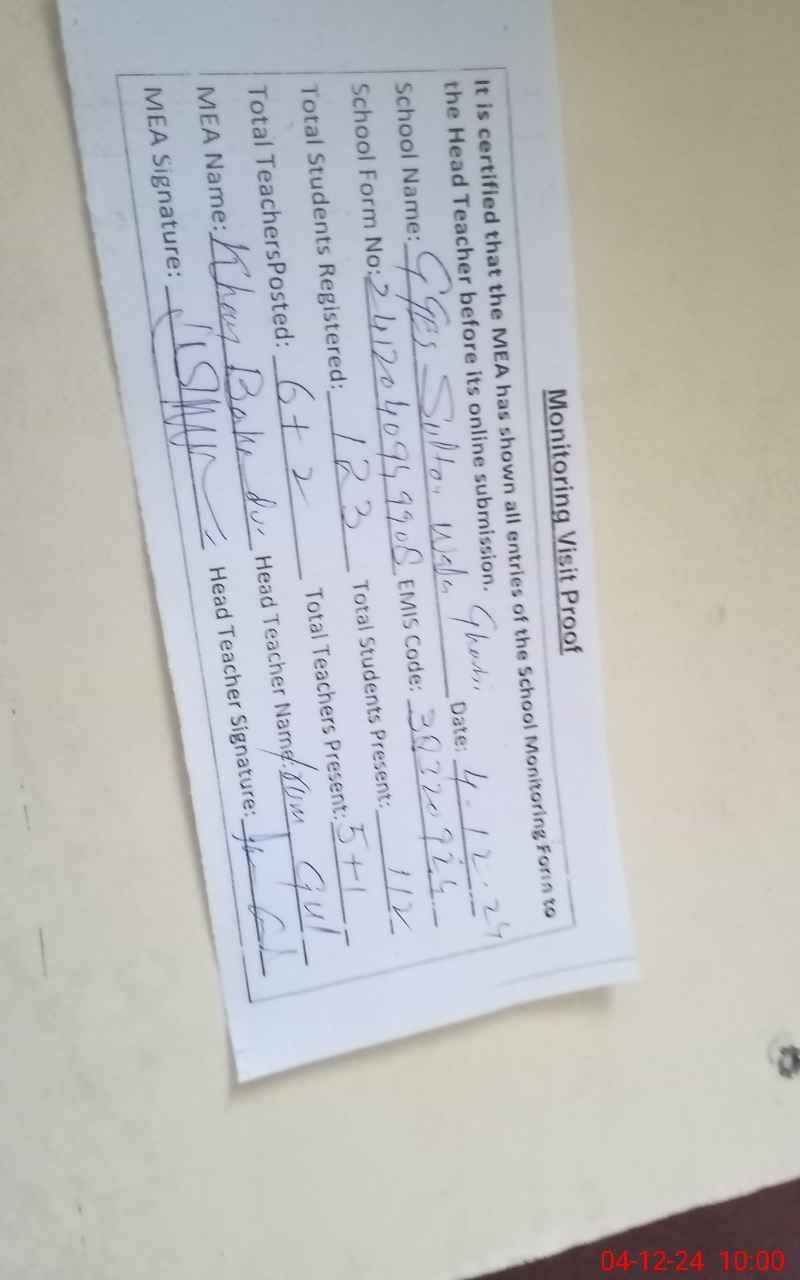 Monitoring Visit Proof
It is certified that the MEA has shown all entries of the School Monitoring Form to
the Head Teacher before its online submission.
School Name: GGPS Sultan Wala Date: 4.12.24
School Form No: EMIS Code:
Total Students Registered: 123 Total Students Present: 112
Total TeachersPosted: 6+2 Total Teachers Present: 5+1
MEA Name: Khan Bahadur Head Teacher Name: Gul
MEA Signature: Head Teacher Signature:
04-12-24 10:00